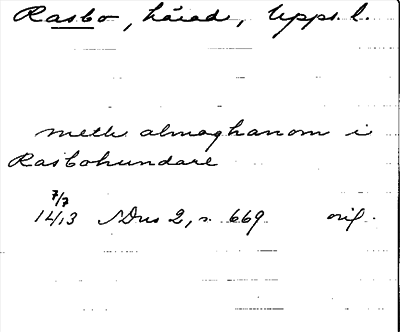 Rasbo, härad, Upps. l.
meth almoghanom i
Rasbohundare
7/7
1413 SDns 2, s. 669 orig.